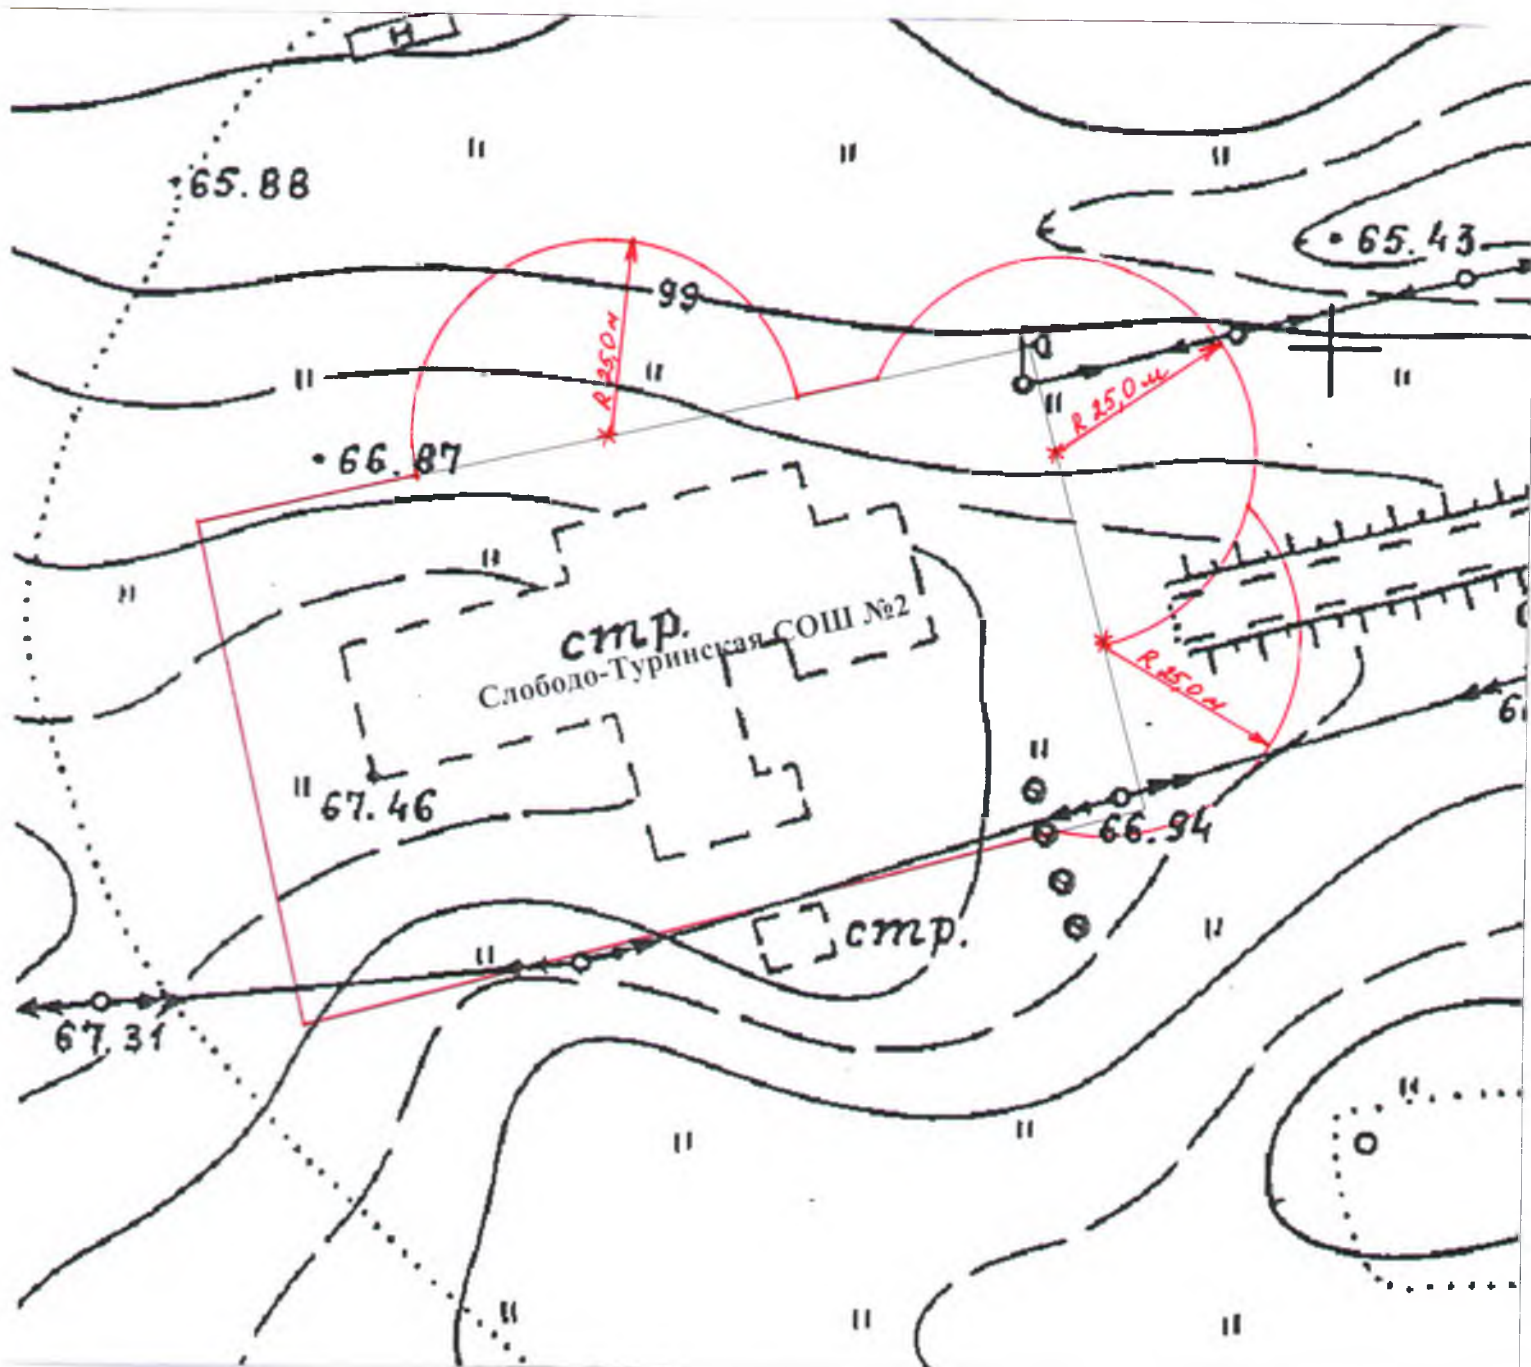 Н
65.88
65.43
99
R 25,0 м
R 25,0 м
66.87
стр.
Слободо-Туринская СОШ №2
R 25,0 м
67.46
66.94
стр.
67.31